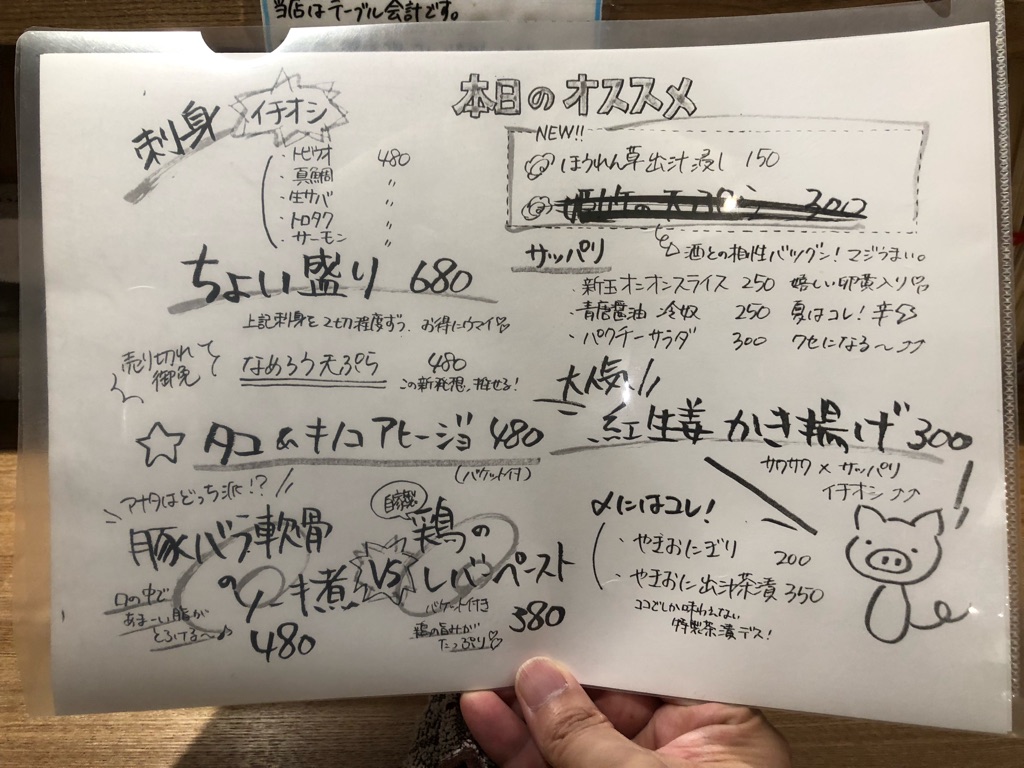 当店はテーブル会計です。
本日のオススメ
刺身
イチオシ
・トビウオ 480
・真鯛 〃
・生サバ 〃
・トロタク 〃
・サーモン 〃
ちょい盛り 680
上記刺身を2切程度ずつ。お得にウマイ
売り切れ
御免
なめろう天ぷら 480
この新発想、推せる!
☆タコ&キノコアヒージョ 480
(バケット付)
アナタはどっち派!?
豚バラ軟骨
のソーキ煮
480
口の中で
あまーい脂が
とろける〜♪
VS
自家製
鶏の
レバーペースト
バケット付き
380
鶏の旨みが
たっぷり
NEW!!
ほうれん草出汁浸し 150
300
酒との相性バツグン!マジうまい。
サッパリ
・新玉オニオンスライス 250 嬉しい卵黄入り
・青唐醤油 冷奴 250 夏はコレ!辛
・パクチーサラダ 300 クセになる〜↗↗
大人気!!
紅生姜かき揚げ 300
サクサク×サッパリ
イチオシ↗↗
〆にはコレ!
・やきおにぎり 200
・やきおに出汁茶漬 350
ココでしか味わえない
特製茶漬デス!